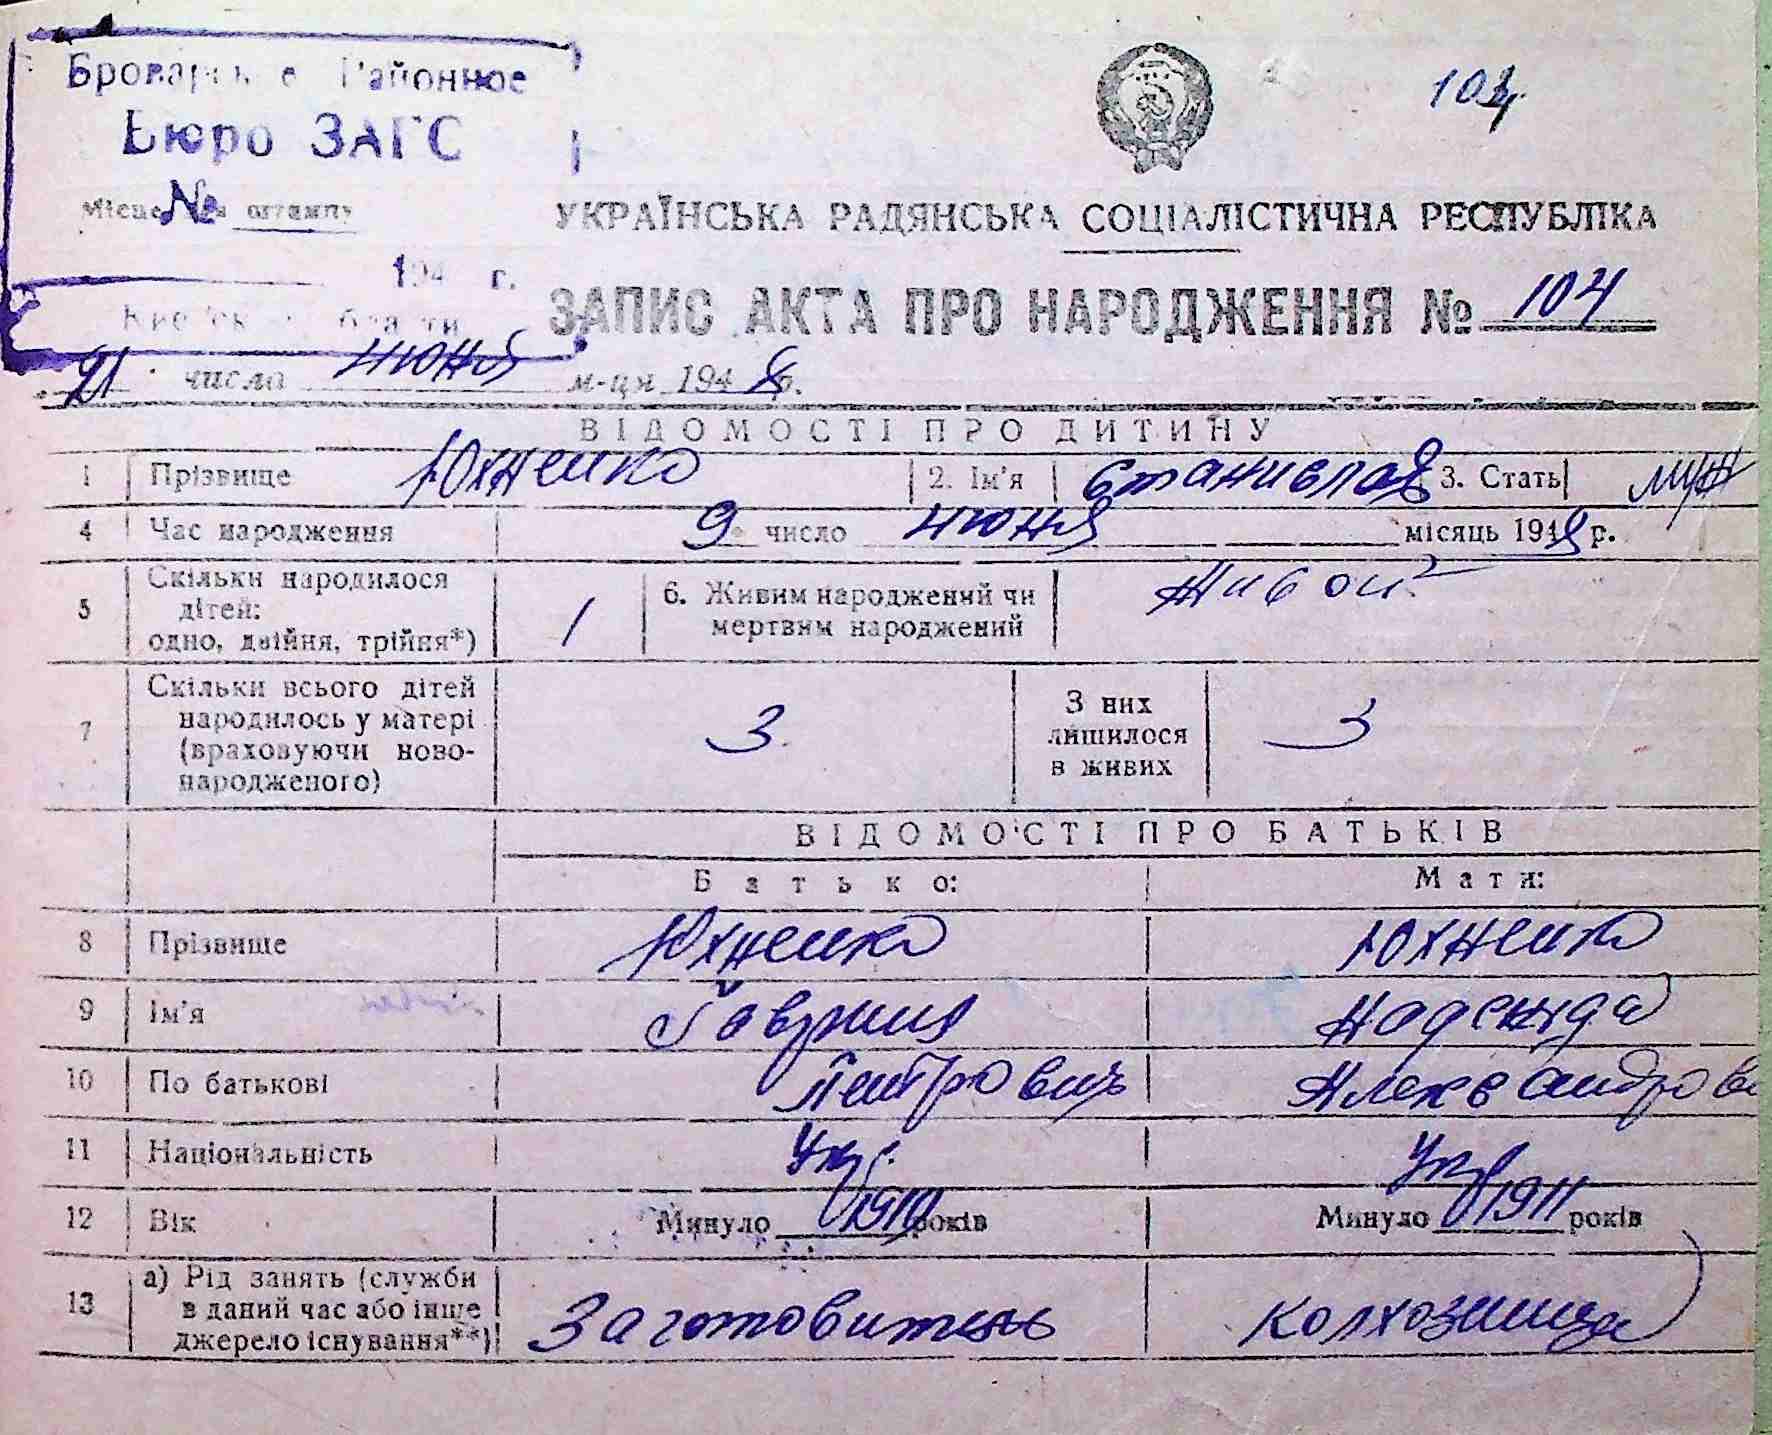 Районное
104
Бюро ЗАГС
Місце для штампу
№
УКРАЇНСЬКА РАДЯНСЬКА СОЦІАЛІСТИЧНА РЕСПУБЛІКА
194 г.
ЗАПИС АКТА ПРО НАРОДЖЕННЯ № 104
21 числа июня м-ця 1948 р.
ВІДОМОСТІ ПРО ДИТИНУ
1 Прізвище Юхненко 2. Ім'я Станислав 3. Стать муж
4 Час народження 9 число июня місяць 1948 р.
5 Скільки народилося дітей: одно, двійня, трійня*) 1 6. Живим народжений чи мертвим народжений Живой
7 Скільки всього дітей народилось у матері (враховуючи ново-народженого) 3 З них лишилося в живих 3
ВІДОМОСТІ ПРО БАТЬКІВ
Батько: Мати:
8 Прізвище Юхненко Юхненко
9 Ім'я Гавриил Надежда
10 По батькові Петрович Александровн
11 Національність Укр. Укр
12 Вік Минуло 1910 років Минуло 1911 років
13 а) Рід занять (служби в даний час або інше джерело існування**) Заготовитель колхозница